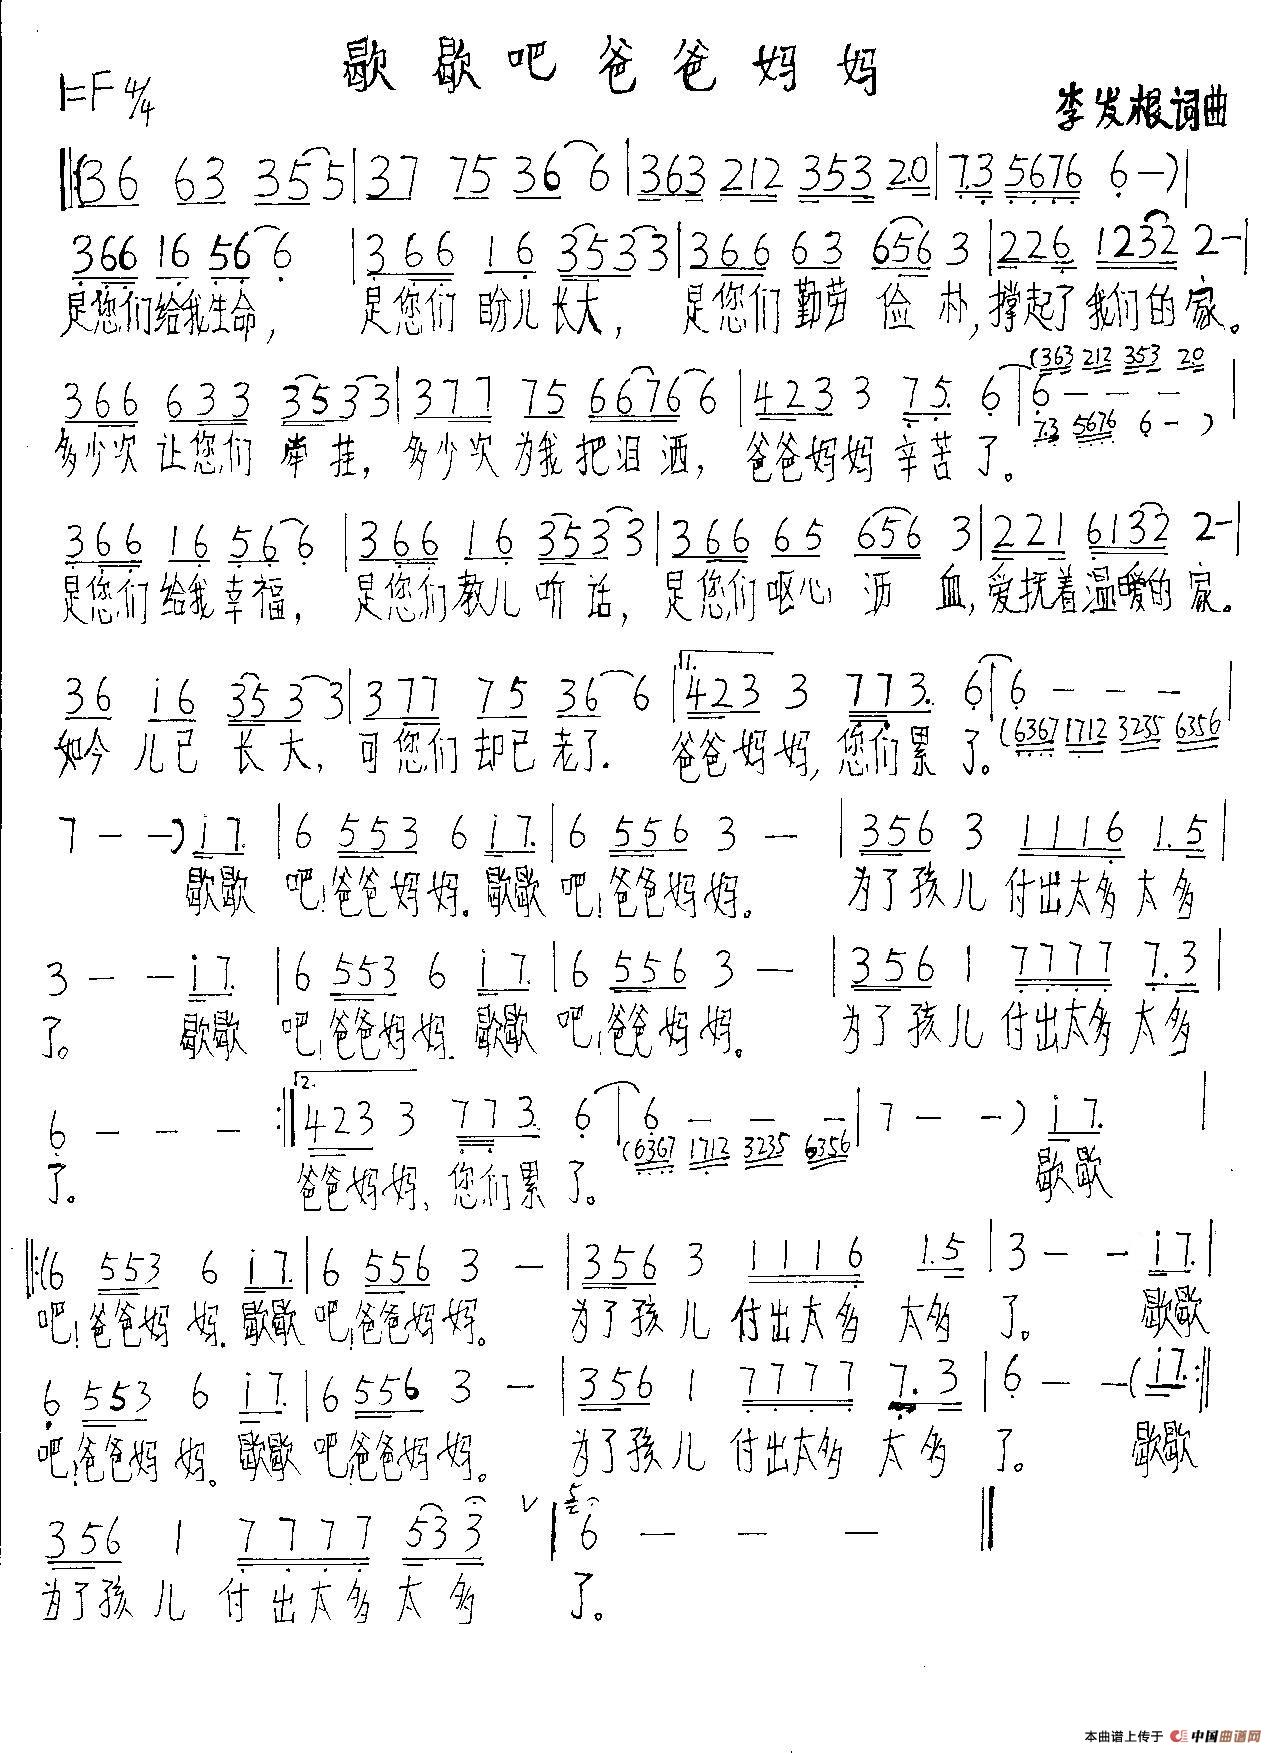 歇歇吧爸爸妈妈
1=F 4/4
李发根词曲
(36 63 355|37 75 36 6|363 212 353 20|7.3 5676 6-)|
366 16 56 6 |366 16 3533|366 63 656 3|226 1232 2-|
是您们给我生命, 是您们盼儿长大, 是您们勤劳俭朴,撑起了我们的家。
(363 212 353 20
366 633 3533|377 75 66766|423 3 75. 6|6 - - -|
73 5676 6-)
多少次让您们牵挂,多少次为我把泪洒,爸爸妈妈辛苦了。
366 16 56 6|366 16 3533|366 65 656 3|221 6132 2-|
是您们给我幸福,是您们教儿听话,是您们呕心沥血,爱抚着温暖的家。
1.
36 i6 35 3 3|377 75 36 6|423 3 773. 6|6 - - -|
(6367 1712 3235 6356
如今儿已长大,可您们却已老了.爸爸妈妈,您们累了。
7 - -) i7.|6 553 6 i7.|6 556 3 -|356 3 1116 1.5|
歇歇吧!爸爸妈妈.歇歇吧!爸爸妈妈。为了孩儿付出太多太多
3 - - i7.|6 553 6 i7.|6 556 3 -|356 1 7777 7.3|
了。歇歇吧!爸爸妈妈.歇歇吧!爸爸妈妈。为了孩儿付出太多太多
2.
6 - - - :||423 3 773. 6|6 - - -|7 - -) i7.|
(6367 1712 3235 6356
了。爸爸妈妈、您们累了。歇歇
||:(6 553 6 i7.|6 556 3 -|356 3 1116 1.5|3 - - i7.|
吧!爸爸妈妈.歇歇吧!爸爸妈妈。为了孩儿付出太多太多了。歇歇
6 553 6 i7.|6 556 3 -|356 1 7777 7.3|6 - -(i7.:||
吧!爸爸妈妈。歇歇吧!爸爸妈妈。为了孩儿付出太多太多了。歇歇
356 1 7777 53 3 V|6 - - - ||
为了孩儿付出太多太多了。
本曲谱上传于 中国曲谱网